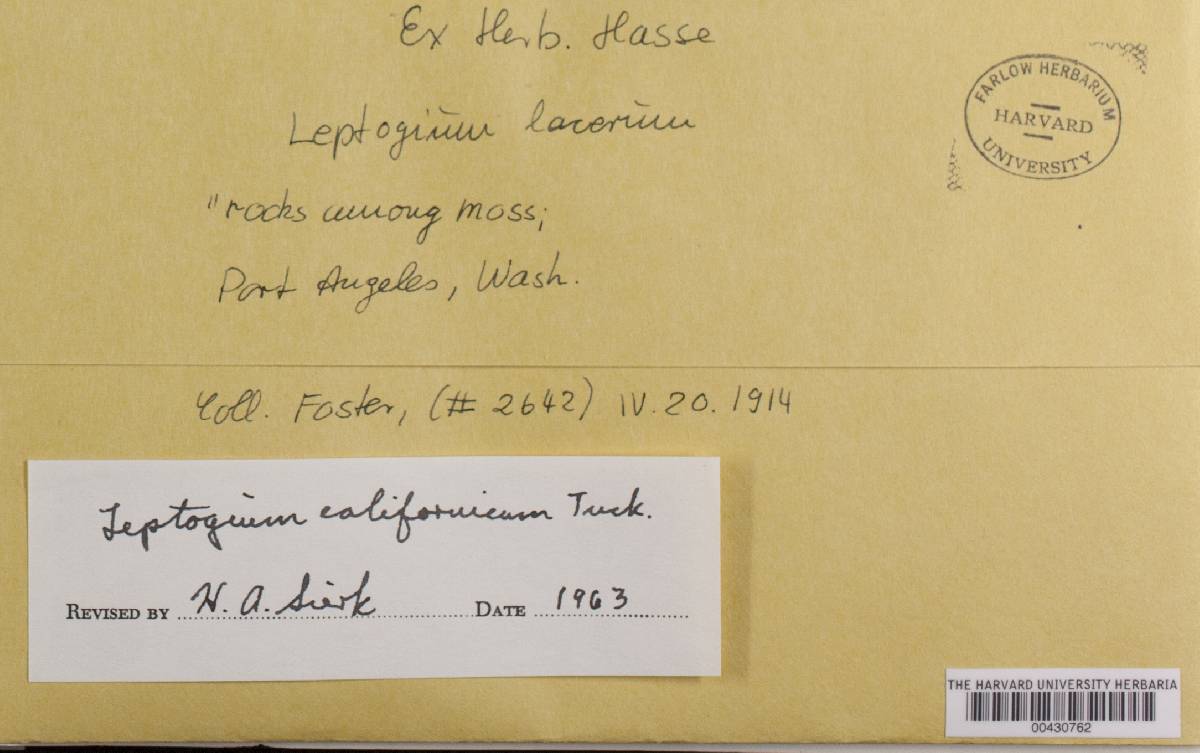 Ex Herb. Hasse
FARLOW HERBARIUM
HARVARD
UNIVERSITY
Leptogium lacerum
"rocks among moss;
Port Angeles, Wash.
Coll. Foster, (# 2642) IV. 20. 1914
Leptogium californicum Tuck.
REVISED BY H. A. Sierk DATE 1963
THE HARVARD UNIVERSITY HERBARIA
00430762